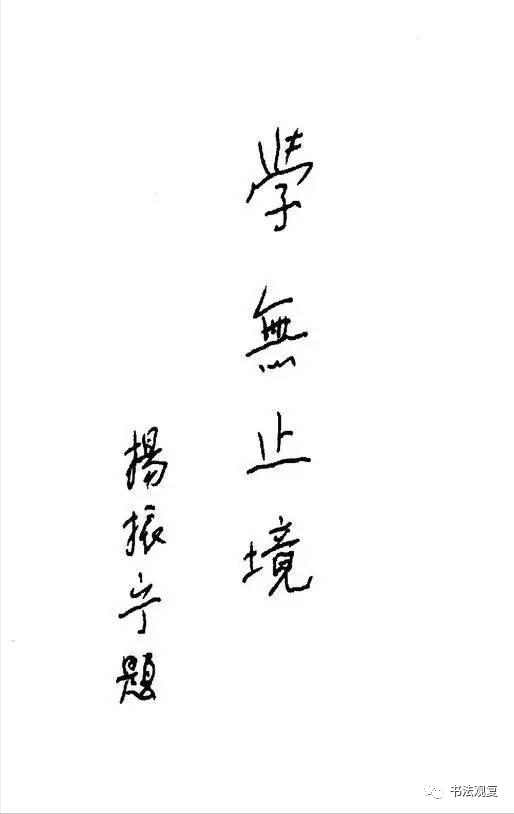 學無止境
楊振宁題
书法观复